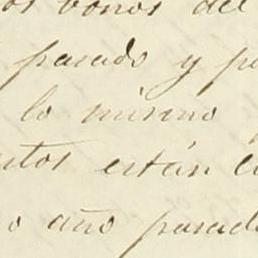 os bonos del
pasado y p
lo mismo
ntos están c
o año pasad